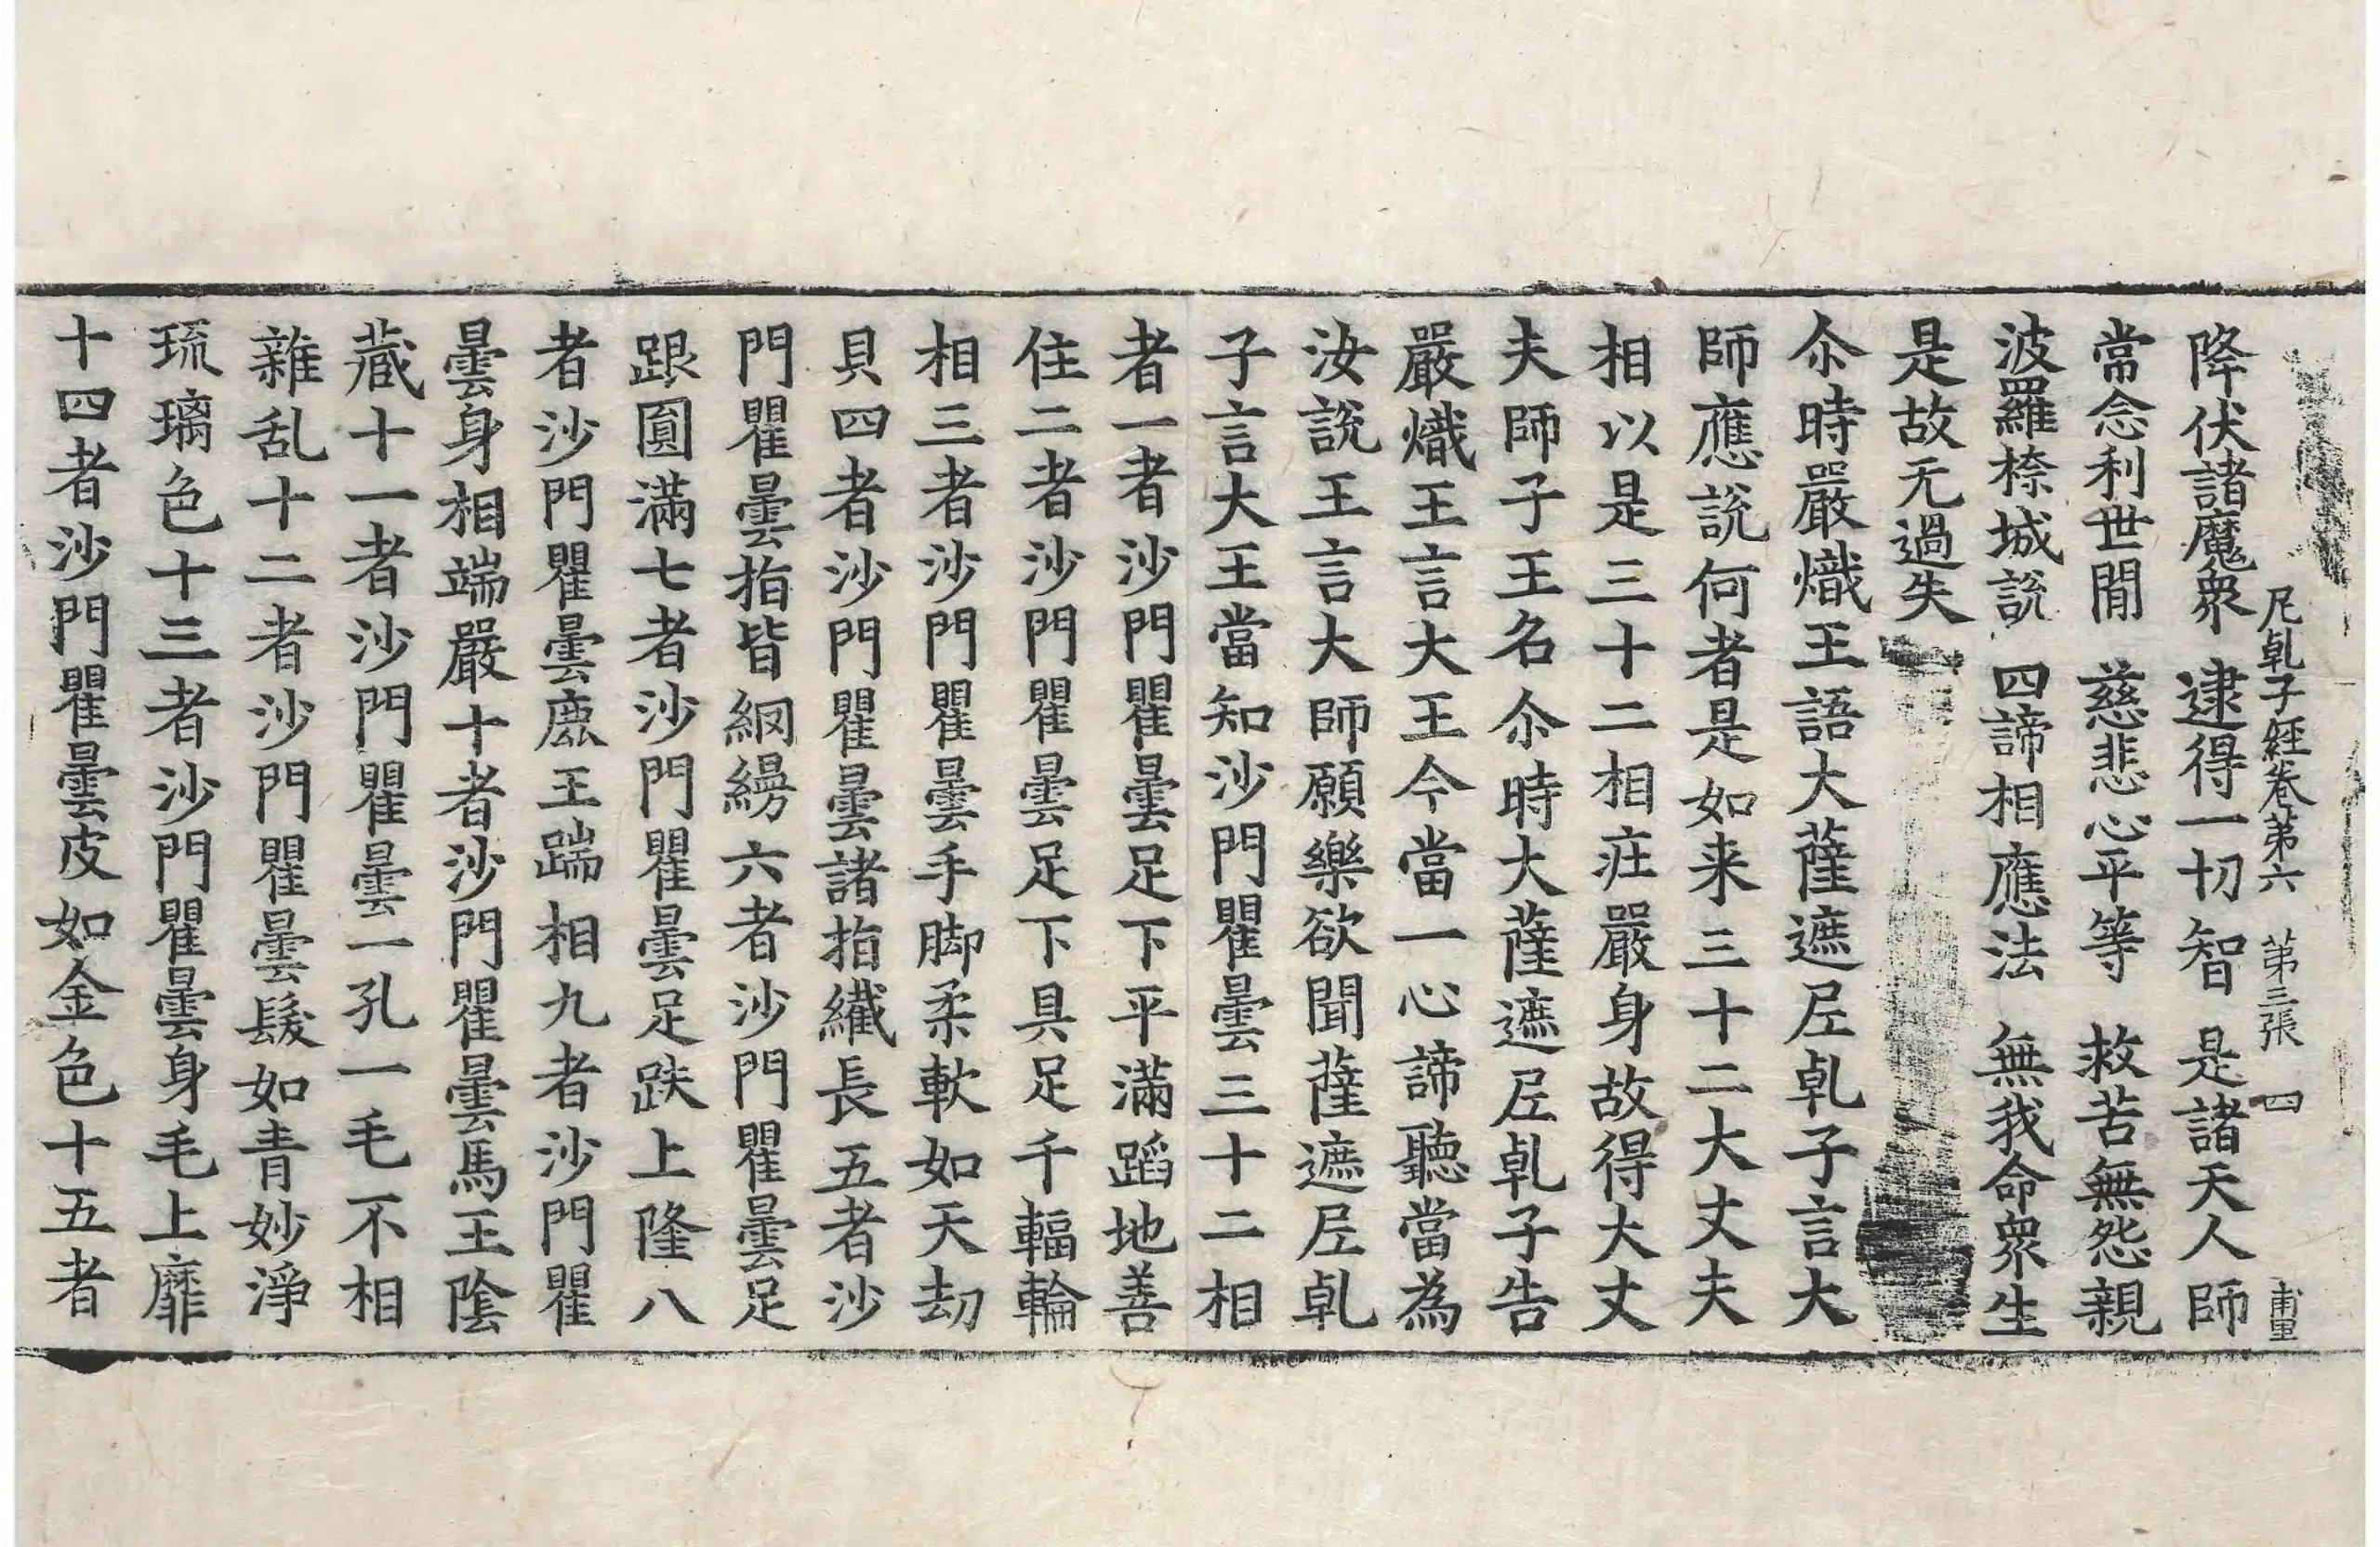 尼乹子經卷第六　第三張　四
降伏諸魔衆　逮得一切智　是諸天人師
常念利世閒　慈悲心平等　救苦無怨親
波羅㮈城說　四諦相應法　無我命衆生
是故无過失
尒時嚴熾王語大薩遮尼乹子言大
師應說何者是如来三十二大丈夫
相以是三十二相莊嚴身故得大丈
夫師子王名尒時大薩遮尼乹子告
嚴熾王言大王今當一心諦聽當為
汝說王言大師願樂欲聞薩遮尼乹
子言大王當知沙門瞿曇三十二相
者一者沙門瞿曇足下平滿蹈地善
住二者沙門瞿曇足下具足千輻輪
相三者沙門瞿曇手脚柔軟如天劫
貝四者沙門瞿曇諸指纖長五者沙
門瞿曇指皆網縵六者沙門瞿曇足
跟圓滿七者沙門瞿曇足趺上隆八
者沙門瞿曇鹿王踹相九者沙門瞿
曇身相端嚴十者沙門瞿曇馬王陰
藏十一者沙門瞿曇一孔一毛不相
雜乱十二者沙門瞿曇髮如青妙淨
琉璃色十三者沙門瞿曇身毛上靡
十四者沙門瞿曇皮如金色十五者